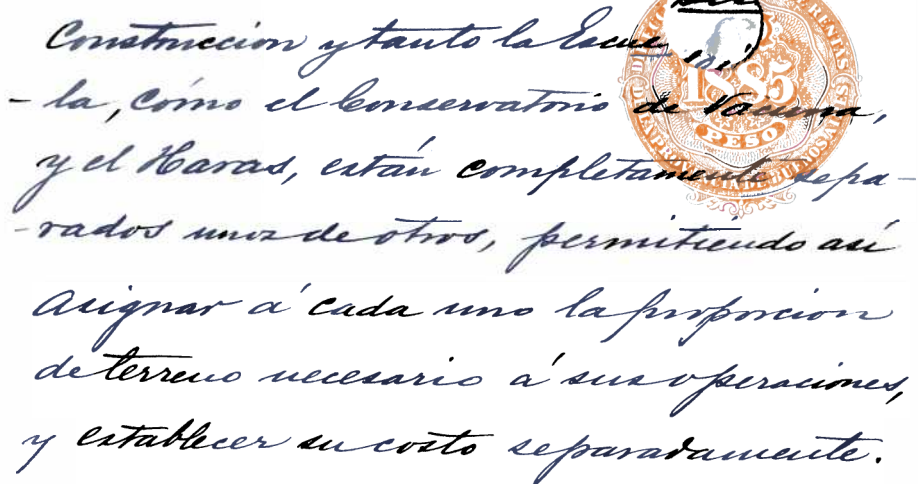 Construccion y tanto la Escue
- la, cómo el Conservatorio de Vacuna,
y el Haras, están completamente sepa-
-rados unos de otros, permitiendo así
asignar á cada uno la proporcion
de terreno necesario á sus operaciones,
y establecer su costo separadamente.
1885
PESO